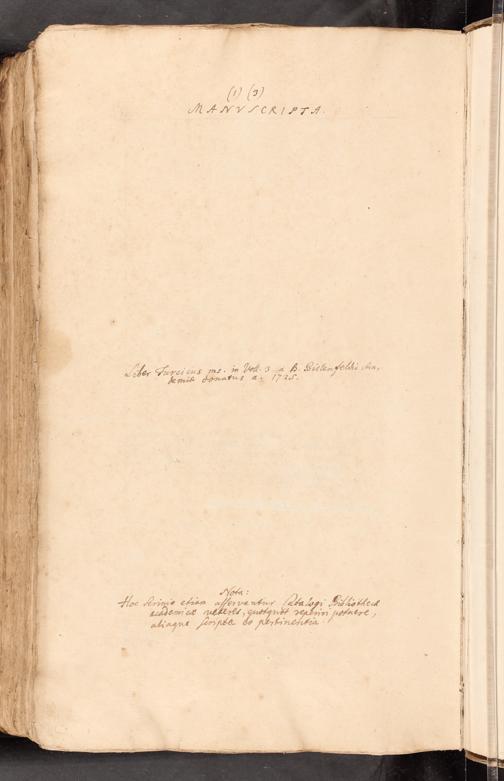 (1) (3)
MANVSCRIPTA.
Liber Turcicus ms. in Vol. 3 a B.
demiæ donatus a. 1725.
Nota:
Hoc scrinio etiam asservantur Catalogi Bibliothecæ
academicæ veteres, quotquot reperiri potuere,
aliaque scripta eo pertinentia.